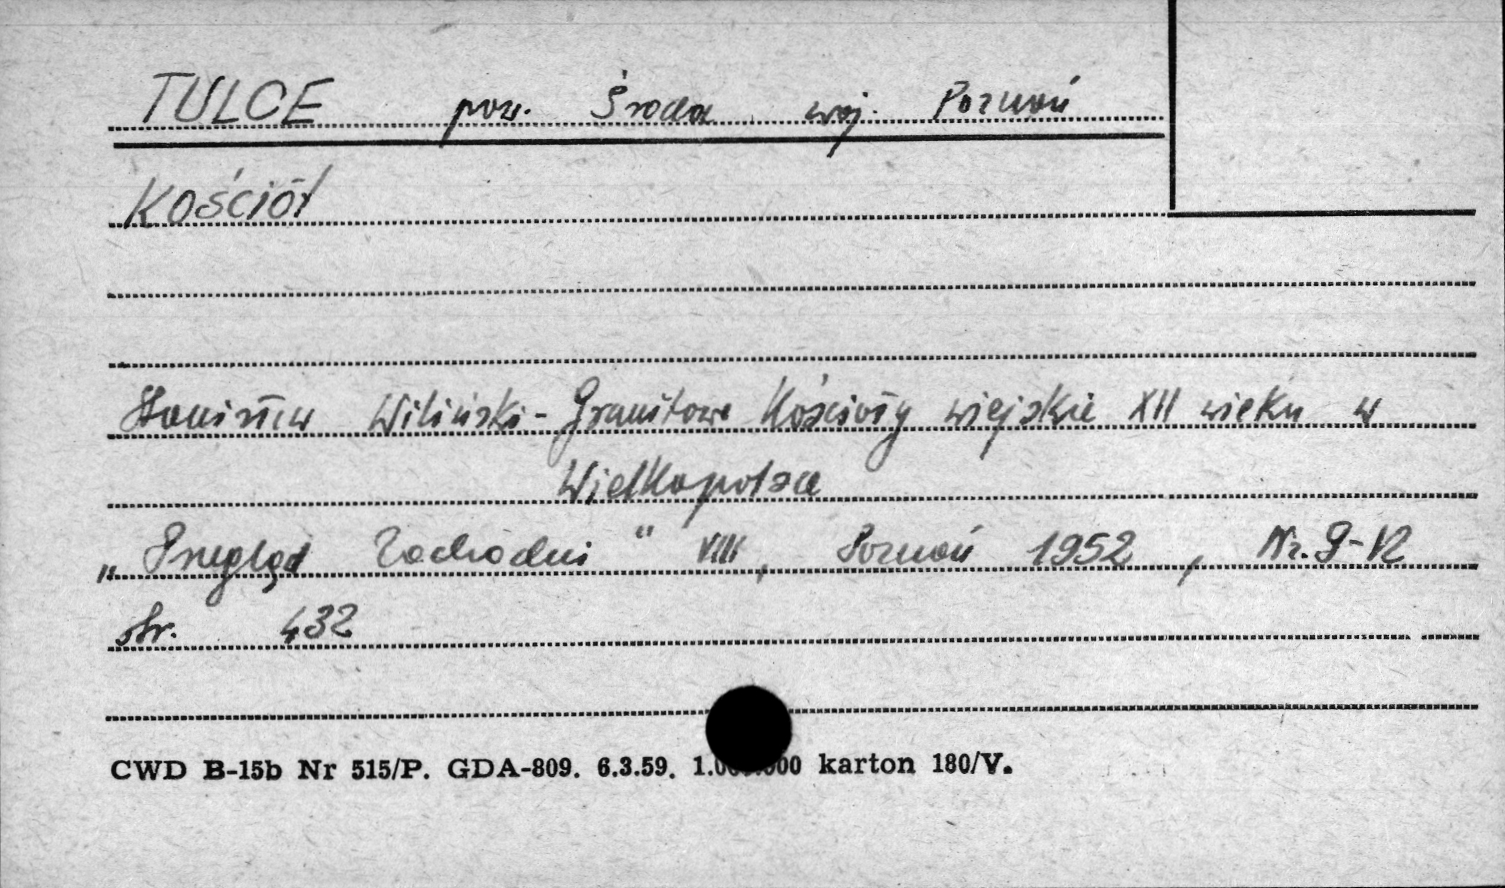 TULCE pow. Środa woj. Poznań
Kościół
Stanisław Wiliński - Granitowe Kościoły wiejskie XII wieku w
Wielkopolsce
„Przegląd Zachodni" VIII, Poznań 1952, Nr. 9-12
str. 432
CWD B-15b Nr 515/P. GDA-809. 6.3.59. karton 180/V.